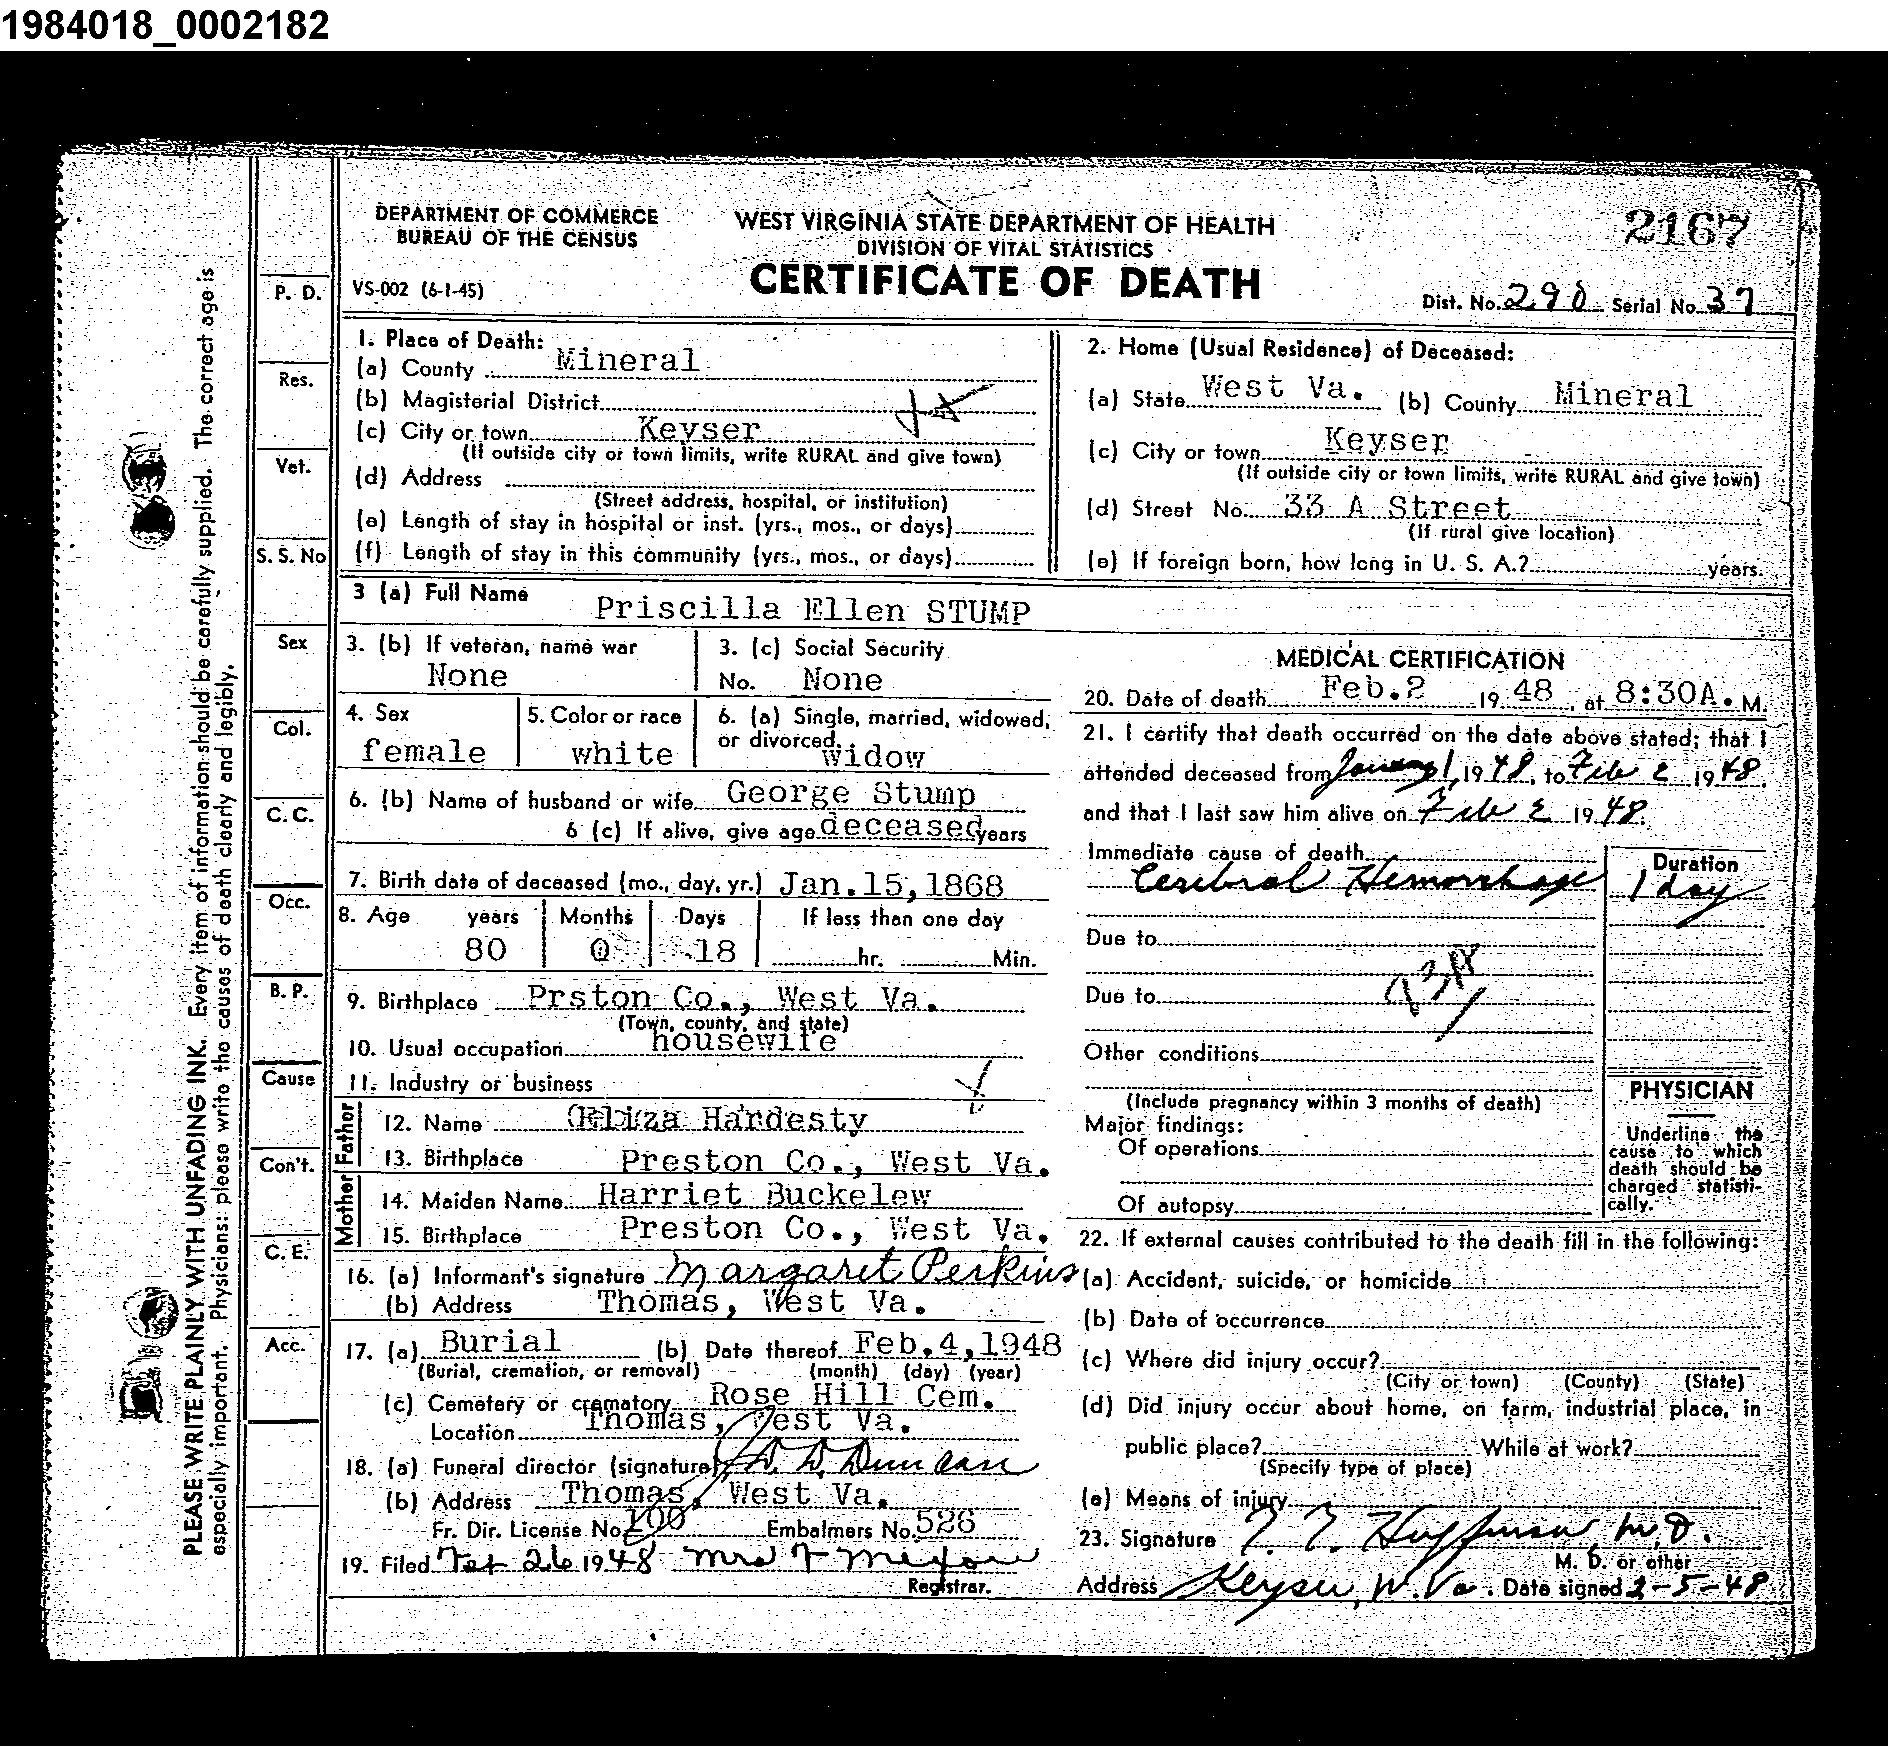 1984018_0002182
DEPARTMENT OF COMMERCE
BUREAU OF THE CENSUS
WEST VIRGINIA STATE DEPARTMENT OF HEALTH
DIVISION OF VITAL STATISTICS
CERTIFICATE OF DEATH
2167
VS-002 (6-1-45)
Dist. No. 290 Serial No. 37
PLEASE WRITE PLAINLY WITH UNFADING INK. Every item of information should be carefully supplied. The correct age is
especially important. Physicians: please write the causes of death clearly and legibly.
P. D.
Res.
Vet.
S. S. No
Sex
Col.
C. C.
Occ.
B. P.
Cause
Con't.
C. E.
Acc.
1. Place of Death:
(a) County Mineral
(b) Magisterial District
(c) City or town Keyser
(If outside city or town limits, write RURAL and give town)
(d) Address
(Street address, hospital, or institution)
(e) Length of stay in hospital or inst. (yrs., mos., or days)
(f) Length of stay in this community (yrs., mos., or days)
2. Home (Usual Residence) of Deceased:
(a) State West Va. (b) County Mineral
(c) City or town Keyser
(If outside city or town limits, write RURAL and give town)
(d) Street No. 33 A Street
(If rural give location)
(e) If foreign born, how long in U. S. A.? years.
3 (a) Full Name Priscilla Ellen STUMP
3. (b) If veteran, name war
None
3. (c) Social Security
No. None
4. Sex
female
5. Color or race
white
6. (a) Single, married, widowed,
or divorced. Widow
6. (b) Name of husband or wife George Stump
6 (c) If alive, give age deceased years
7. Birth date of deceased (mo., day, yr.) Jan. 15, 1868
8. Age years Months Days If less than one day
80 0 18 hr. Min.
9. Birthplace Prston Co., West Va.
(Town, county, and state)
10. Usual occupation housewife
11. Industry or business
Father
12. Name Hardesty
13. Birthplace Preston Co., West Va.
Mother
14. Maiden Name Harriet Buckelew
15. Birthplace Preston Co., West Va.
16. (a) Informant's signature Margaret Perkins
(b) Address Thomas, West Va.
17. (a) Burial (b) Date thereof Feb. 4, 1948
(Burial, cremation, or removal) (month) (day) (year)
(c) Cemetery or crematory Rose Hill Cem.
Location Thomas, West Va.
18. (a) Funeral director (signature) D. Duncan
(b) Address Thomas, West Va.
Fr. Dir. License No. 100 Embalmers No. 526
19. Filed 26 1948 Mrs
Registrar.
MEDICAL CERTIFICATION
20. Date of death Feb. 2 1948, at 8:30A. M.
21. I certify that death occurred on the date above stated; that I
attended deceased from January 1, 1948, to Feb 2 1948
and that I last saw him alive on Feb 2 1948.
Immediate cause of death
Cerebral Hemorrhage
Duration
1 day
Due to
Due to
Other conditions
(Include pregnancy within 3 months of death)
Major findings:
Of operations
Of autopsy
PHYSICIAN
Underline the
cause to which
death should be
charged statisti-
cally.
22. If external causes contributed to the death fill in the following:
(a) Accident, suicide, or homicide
(b) Date of occurrence
(c) Where did injury occur?
(City or town) (County) (State)
(d) Did injury occur about home, on farm, industrial place, in
public place? While at work?
(Specify type of place)
(e) Means of injury
23. Signature M.D.
M. D. or other
Address Keyser, W. Va. Date signed 2-5-48